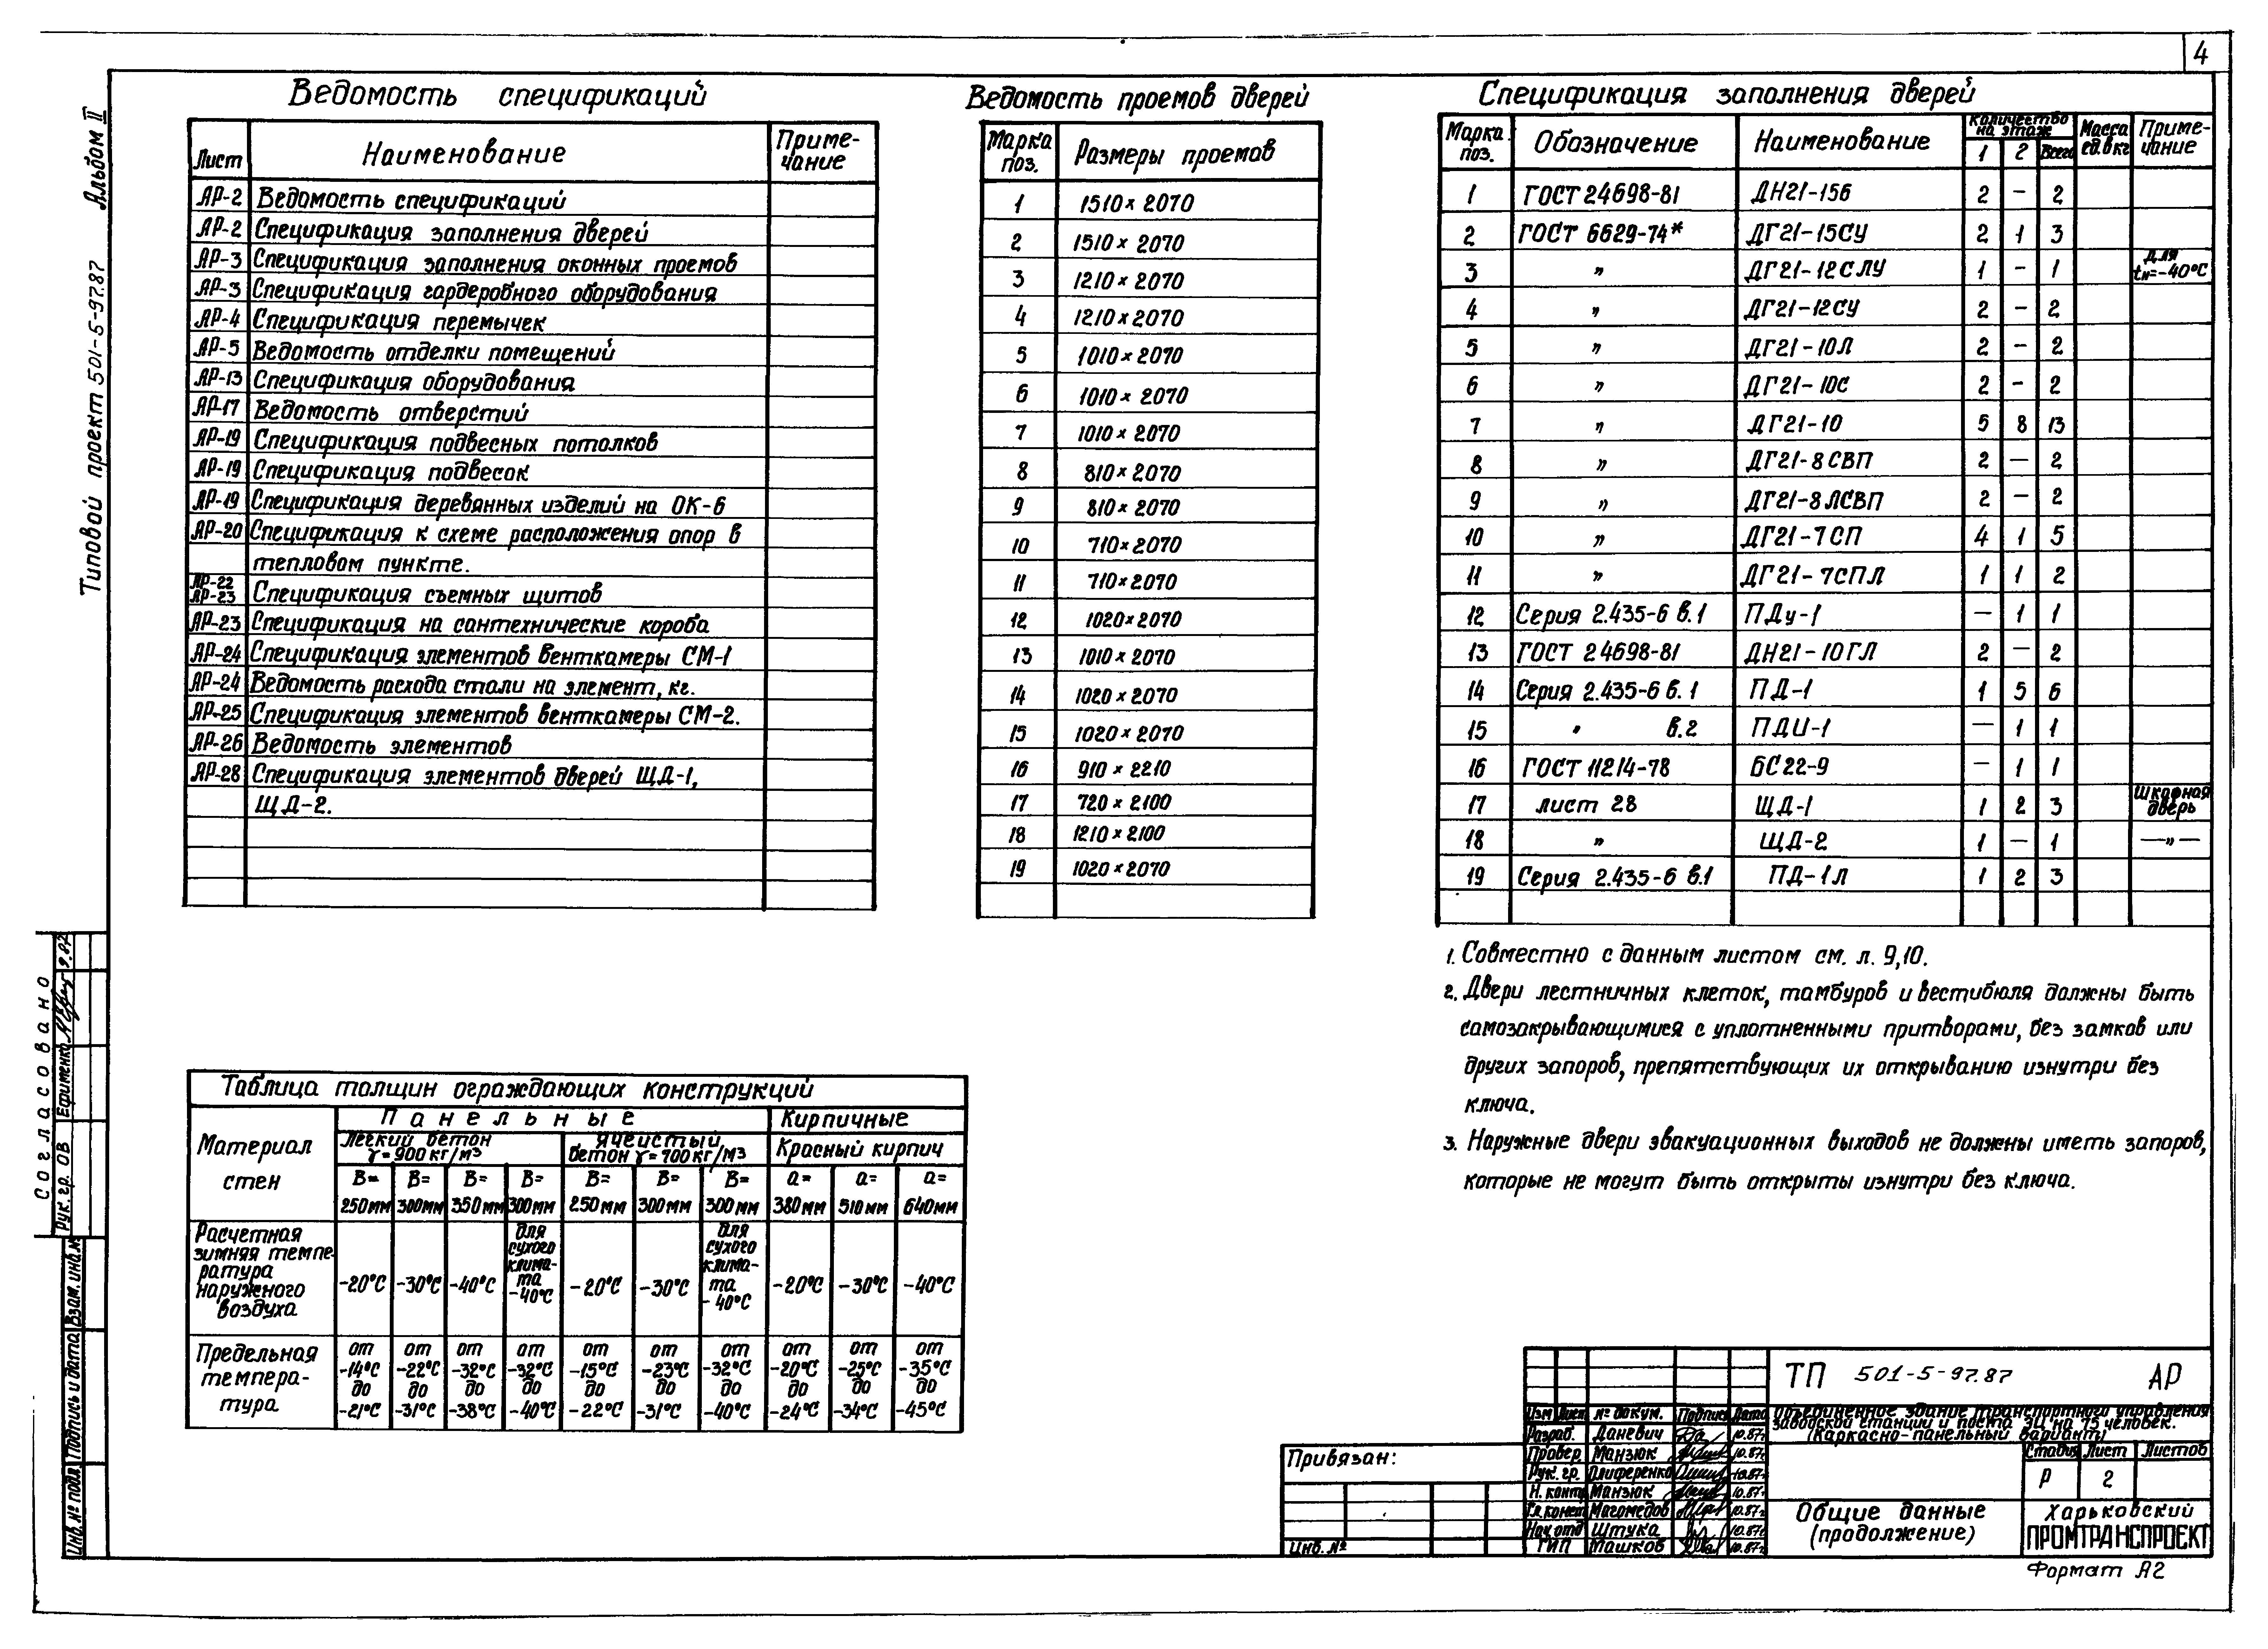 4
Альбом II
Типовой проект 501-5-97.87
Ведомость спецификаций
Лист Наименование Приме-
чание
АР-2 Ведомость спецификаций
АР-2 Спецификация заполнения дверей
АР-3 Спецификация заполнения оконных проемов
АР-3 Спецификация гардеробного оборудования
АР-4 Спецификация перемычек
АР-5 Ведомость отделки помещений
АР-13 Спецификация оборудования
АР-17 Ведомость отверстий
АР-19 Спецификация подвесных потолков
АР-19 Спецификация подвесок
АР-19 Спецификация деревянных изделий на ОК-6
АР-20 Спецификация к схеме расположения опор в
тепловом пункте.
АР-22
АР-23 Спецификация съемных щитов
АР-23 Спецификация на сантехнические короба
АР-24 Спецификация элементов венткамеры СМ-1
АР-24 Ведомость расхода стали на элемент, кг.
АР-25 Спецификация элементов венткамеры СМ-2.
АР-26 Ведомость элементов
АР-28 Спецификация элементов дверей ЩД-1,
ЩД-2.
Ведомость проемов дверей
Марка
поз. Размеры проемов
1 1510 × 2070
2 1510 × 2070
3 1210 × 2070
4 1210 × 2070
5 1010 × 2070
6 1010 × 2070
7 1010 × 2070
8 810 × 2070
9 810 × 2070
10 710 × 2070
11 710 × 2070
12 1020 × 2070
13 1010 × 2070
14 1020 × 2070
15 1020 × 2070
16 910 × 2210
17 720 × 2100
18 1210 × 2100
19 1020 × 2070
Спецификация заполнения дверей
Марка
поз. Обозначение Наименование Количество
на этаж Масса
ед. в кг Приме-
чание
1 2 Всего
1 ГОСТ 24698-81 ДН21-15б 2 – 2
2 ГОСТ 6629-74* ДГ21-15СУ 2 1 3
3 " ДГ21-12СЛУ 1 – 1 для
tн=-40°С
4 " ДГ21-12СУ 2 – 2
5 " ДГ21-10Л 2 – 2
6 " ДГ21-10С 2 – 2
7 " ДГ21-10 5 8 13
8 " ДГ21-8СВП 2 – 2
9 " ДГ21-8ЛСВП 2 – 2
10 " ДГ21-7СП 4 1 5
11 " ДГ21-7СПЛ 1 1 2
12 Серия 2.435-6 в.1 ПДу-1 – 1 1
13 ГОСТ 24698-81 ДН21-10ГЛ 2 – 2
14 Серия 2.435-6 в.1 ПД-1 1 5 6
15 " в.2 ПДИ-1 – 1 1
16 ГОСТ 11214-78 БС22-9 – 1 1
17 лист 28 ЩД-1 1 2 3 Шкафная
дверь
18 " ЩД-2 1 – 1 –"–
19 Серия 2.435-6 в.1 ПД-1л 1 2 3
1. Совместно с данным листом см. л. 9,10.
2. Двери лестничных клеток, тамбуров и вестибюля должны быть
самозакрывающимися с уплотненными притворами, без замков или
других запоров, препятствующих их открыванию изнутри без
ключа.
3. Наружные двери эвакуационных выходов не должны иметь запоров,
которые не могут быть открыты изнутри без ключа.
Таблица толщин ограждающих конструкций
Материал
стен
Панельные Кирпичные
Легкий бетон
γ=900 кг/м3
Ячеистый
бетон γ=700 кг/м3
Красный кирпич
В= В= В= В= В= В= В= а= а= а=
250мм 300мм 350мм 300мм 250мм 300мм 300мм 380мм 510мм 640мм
Расчетная
зимняя темпе-
ратура
наружного
воздуха
-20°С -30°С -40°С для
сухого
клима-
та
-40°С -20°С -30°С для
сухого
клима-
та
-40°С -20°С -30°С -40°С
Предельная
темпера-
тура
от от от от от от от от от от
-14°С -22°С -32°С -32°С -15°С -23°С -32°С -20°С -25°С -35°С
до до до до до до до до до до
-21°С -31°С -38°С -40°С -22°С -31°С -40°С -24°С -34°С -45°С
Согласовано
Рук. гр. ОВ Ефименко
Взам. инв. №
Подпись и дата
Инв. № подл.
Привязан:
Инв. №
ТП 501-5-97.87 АР
Объединенное здание транспортного управления
заводской станции и поста ЭЦ на 75 человек.
(Каркасно-панельный вариант)
Изм Лист № докум. Подпись Дата
Разраб. Даневич 10.87г
Провер. Манзюк 10.87г
Рук. гр. Олиференко 10.87г
Н. контр Манзюк 10.87г
Гл. конст Магомедов 10.87г
Нач. отд Штука 10.87г
ГИП Машков 10.87г
Стадия Лист Листов
Р 2
Общие данные
(продолжение)
Харьковский
ПРОМТРАНСПРОЕКТ
Формат А2